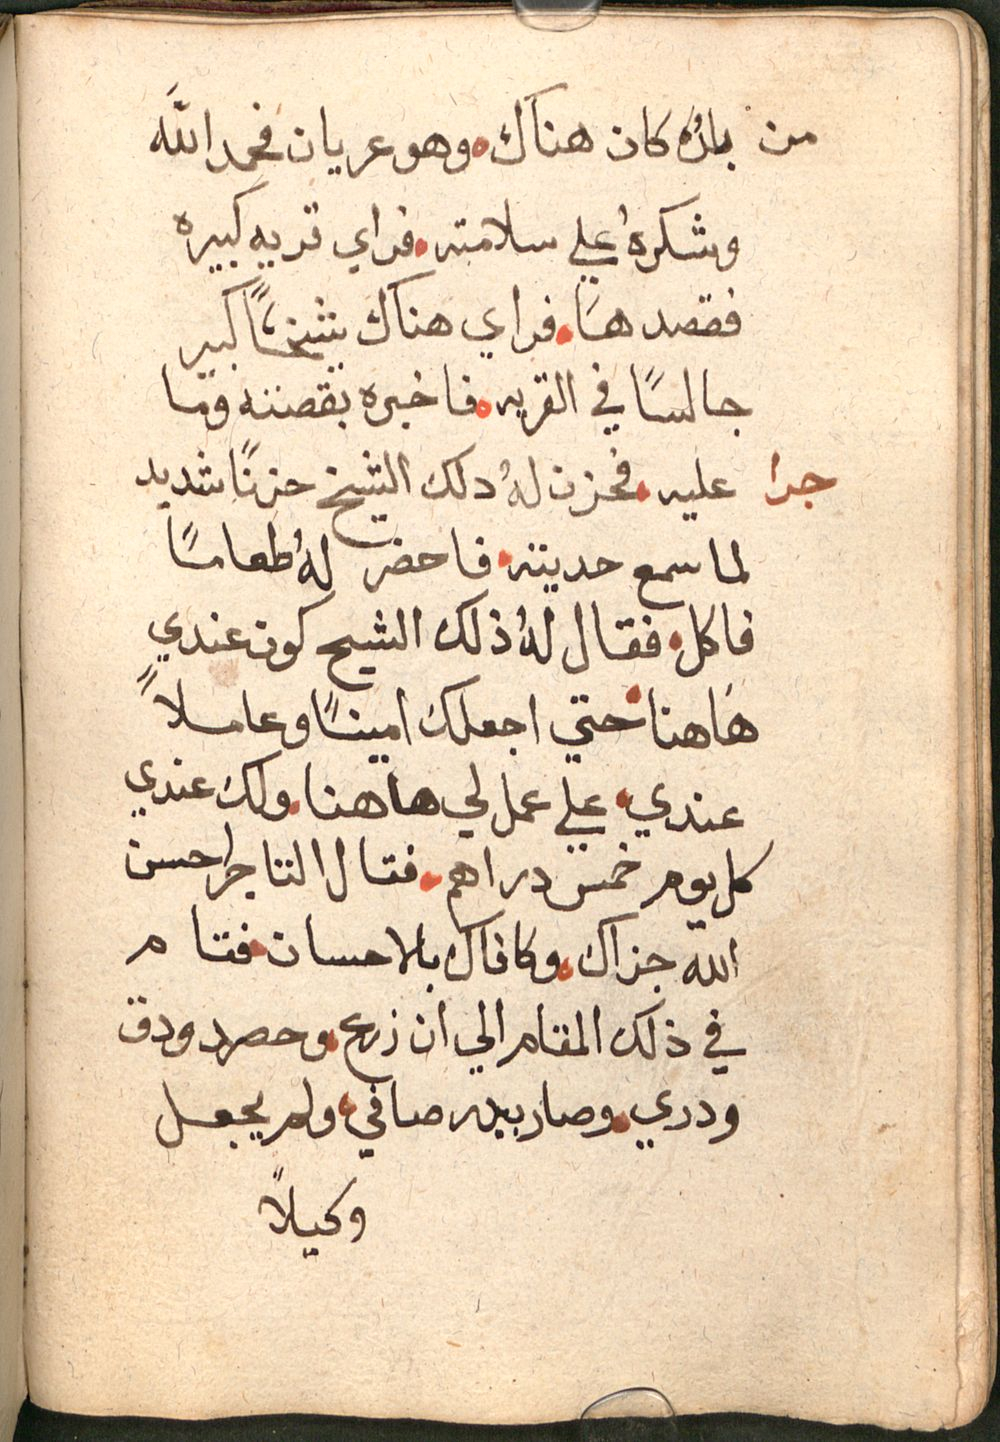 من بلده كان هناك. وهو عريان فحمد اللَه
وشكرهُ علي سلامته. فراي قريه كبيره
فقصدها. فراي هناك شيخًا كبير
جالسًا في القريه. فاخبره بقصته وما
جرا عليه. فحزن لهُ دلك الشيخ حزنًا شديد
لما سمع حديته. فاحضر لهُ طعامًا
فاكل. فقال لهُ ذلك الشيخ كون عندي
هَاهنا. حتي اجعلك امينًا وعاملاً
عندي. علي عمل لي هاهنا. ولك عندي
كل يوم خمس دراهم. فقال التاجر احسن
الله جزاك. وكافاك بالاحسان. فقام
في ذلك المقام الي ان زرع. وحصد ودق
ودري. وصار بيده صافي. ولم يجعل
وكيلاً